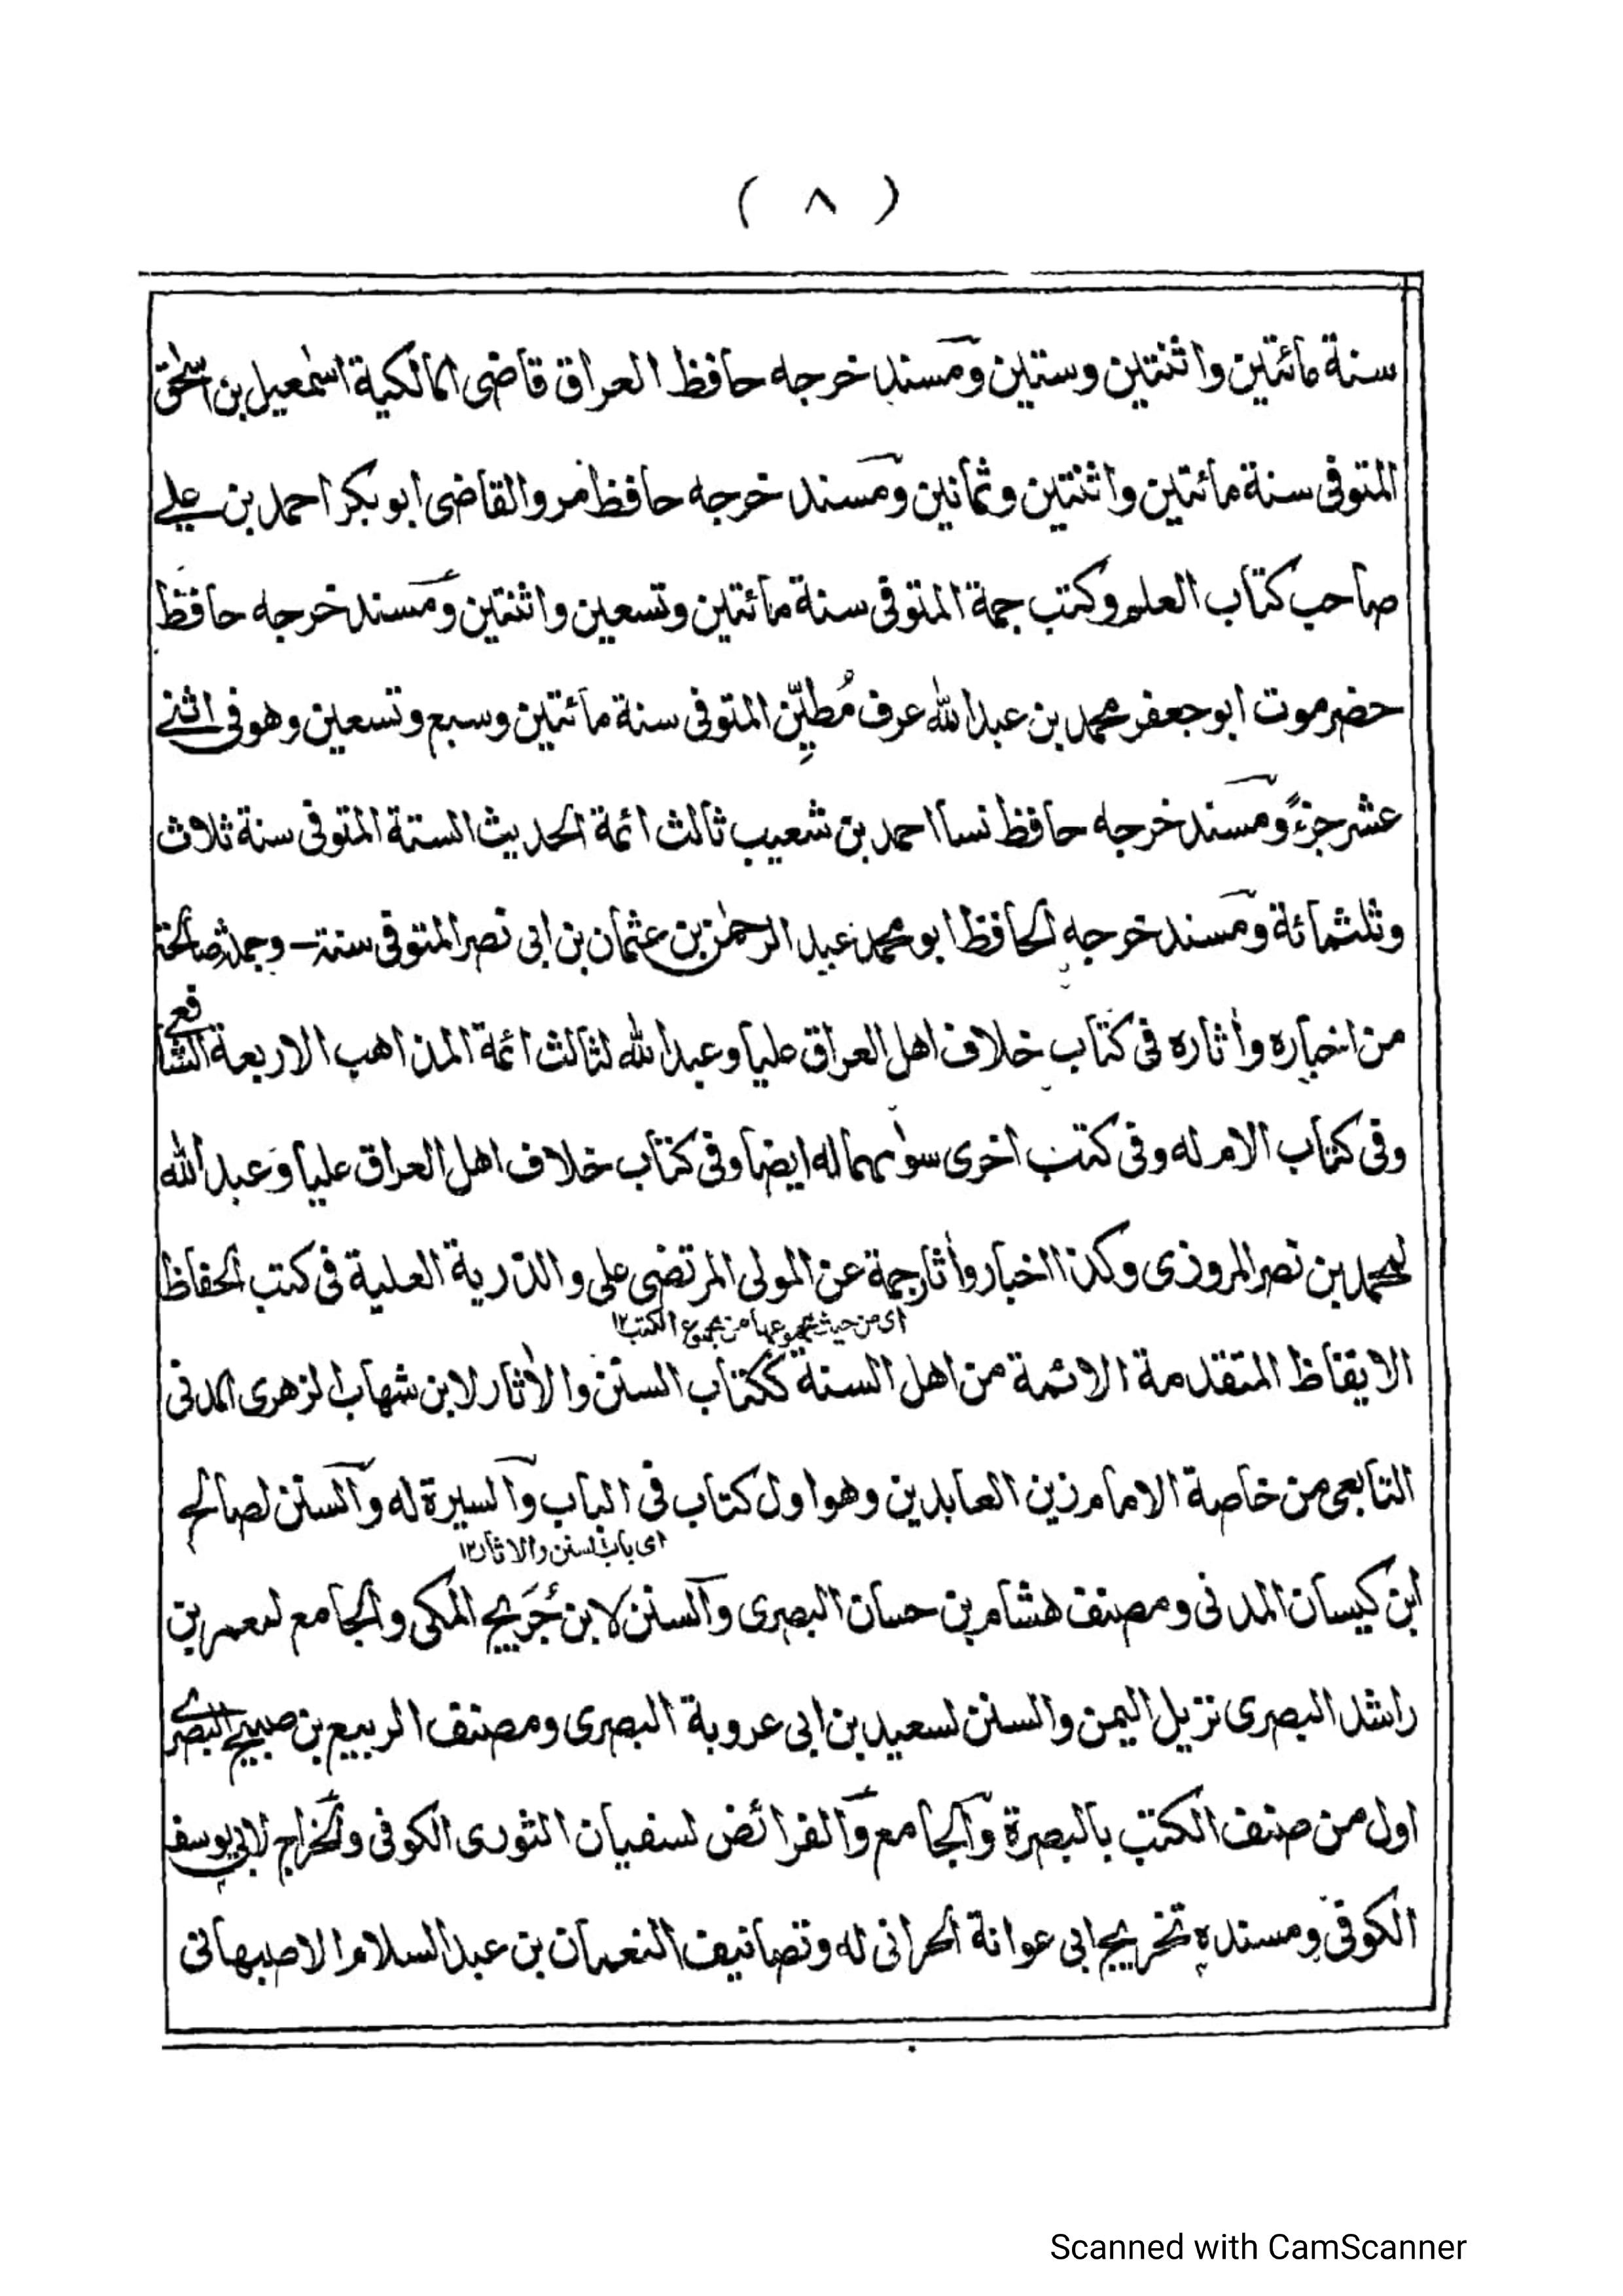 ( ٨ )
سنة مائتين واثنتين وستين ومسند خرجه حافظ العراق قاضى المالكية اسمٰعيل بن اسحٰق
المتوفى سنة مائتين واثنتين وثمانين ومسند خرجه حافظ مرو القاضى ابو بكر احمد بن على
صاحب كتاب العلم وكتب جمة المتوفى سنة مائتين وتسعين واثنتين ومسند خرجه حافظ
حضرموت ابو جعفر محمد بن عبد الله عرف مُطيّن المتوفى سنة مائتين وسبع وتسعين وهو فى اثنى
عشر جزءً ومسند خرجه حافظ نسا احمد بن شعيب ثالث ائمة الحديث الستة المتوفى سنة ثلاث
وثلثمائة ومسند خرجه الحافظ ابو محمد عبد الرحمٰن بن عثمان بن ابى نصر المتوفى سنة – وجملة صالحة
من اخباره وأثاره فى كتاب خلاف اهل العراق عليا وعبد الله لثالث ائمة المذاهب الاربعة الشافعى
وفى كتاب الام له وفى كتب اخرى سوٰىهما له ايضا وفى كتاب خلاف اهل العراق عليا وَعبد الله
لمحمد بن نصر المروزى وكذا اخبار وأثار جمة عن المولى المرتضى على والذرية العلية فى كتب الحفاظ
اى من حيث مجموعها من مجموع الكتب ١٢
الايقاظ المتقدمة الائمة من اهل السنة ككتاب السنن والأثار لابن شهاب الزهرى المدنى
التابعى من خاصة الامام زين العابدين وهو اول كتاب فى الباب والسيرة له والسنن لصالح
اى باب السنن والاثار ١٢
ابن كيسان المدنى ومصنف هشام بن حسان البصرى والسنن لابن جُرَيج المكى والجامع لمعمر بن
راشد البصرى نزيل اليمن والسنن لسعيد بن ابى عروبة البصرى ومصنف الربيع بن صبيح البصرى
اول من صنف الكتب بالبصرة والجامع والفرائض لسفيان الثورى الكوفى والخراج لابى يوسف
الكوفى ومسنده تخريج ابى عوانة الحرانى له وتصانيف النعمان بن عبد السلام الاصبهانى
Scanned with CamScanner